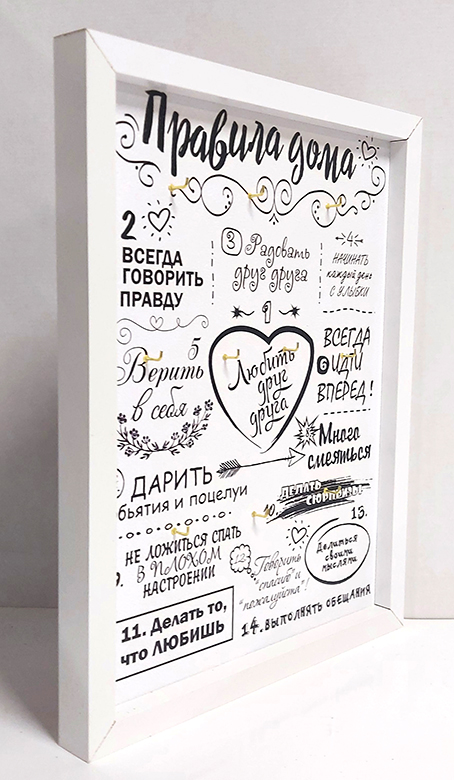 Правила дома
2
ВСЕГДА
ГОВОРИТЬ
ПРАВДУ
3 Радовать
друг друга
4
НАЧИНАТЬ
каждый день
С УЛЫБКИ
1
Любить
друг
друга
5
Верить
в себя
ВСЕГДА
6 ИДТИ
ВПЕРЕД!
Много
смеяться
ДАРИТЬ
бъятия и поцелуи
10.
ДЕЛАТЬ
СЮРПРИЗЫ
НЕ ЛОЖИТЬСЯ СПАТЬ
В ПЛОХОМ
НАСТРОЕНИИ
12
Говорить
"спасибо" и
"пожалуйста"!
13.
Делиться
своими
мыслями
11. Делать то,
что ЛЮБИШЬ
14. ВЫПОЛНЯТЬ ОБЕЩАНИЯ